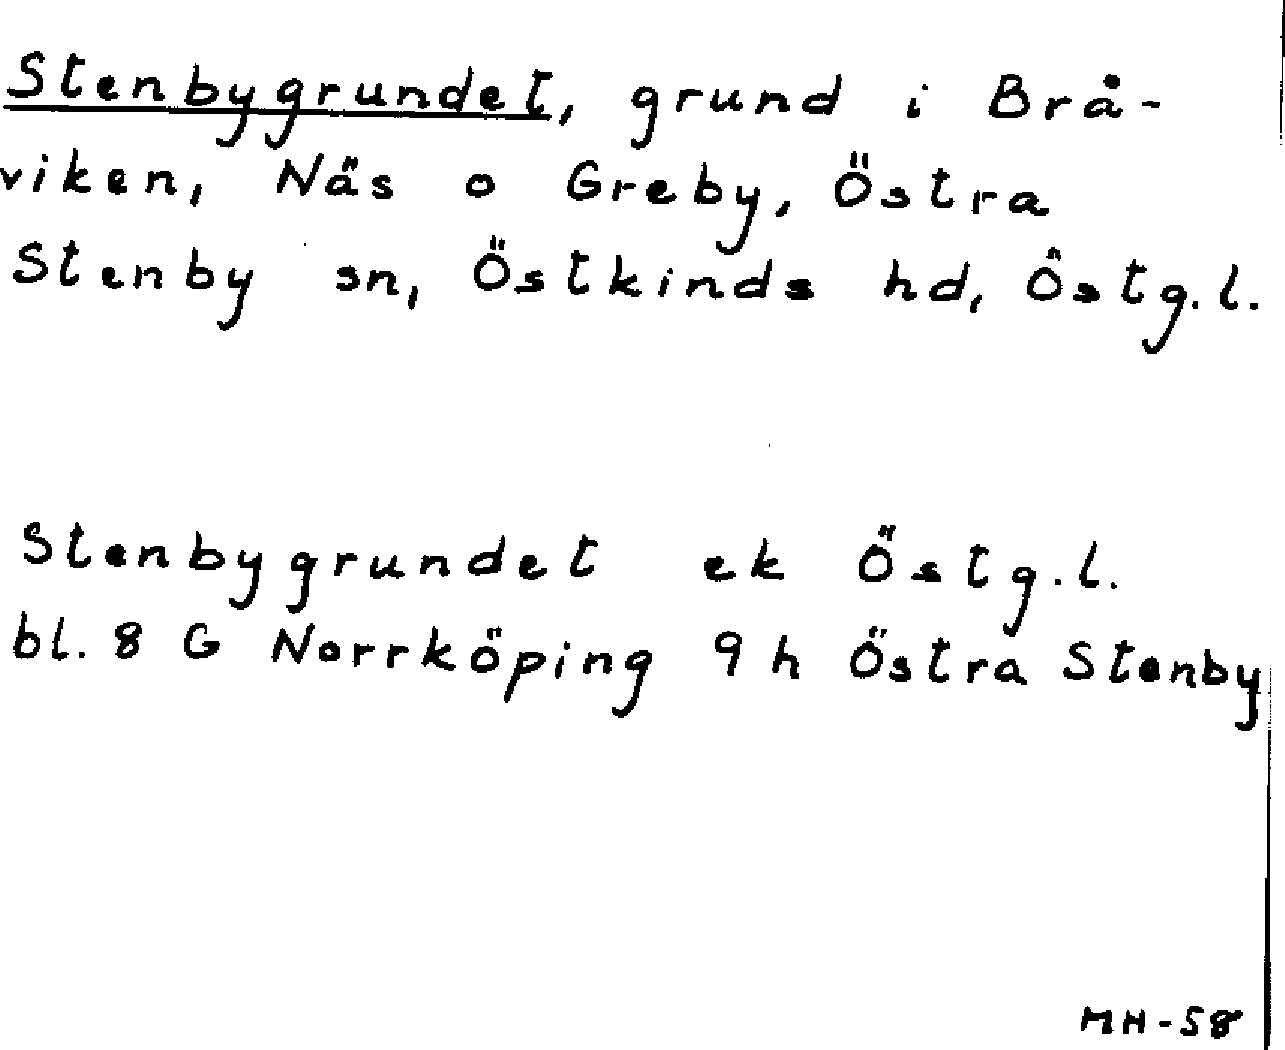 Stenbygrundet, grund i Brå-
viken, Näs o Greby, Östra
Stenby sn, Östkinds hd, Östg.l.
Stenbygrundet ek Östg.l.
bl. 8 G Norrköping 9 h Östra Stenby
MH-58